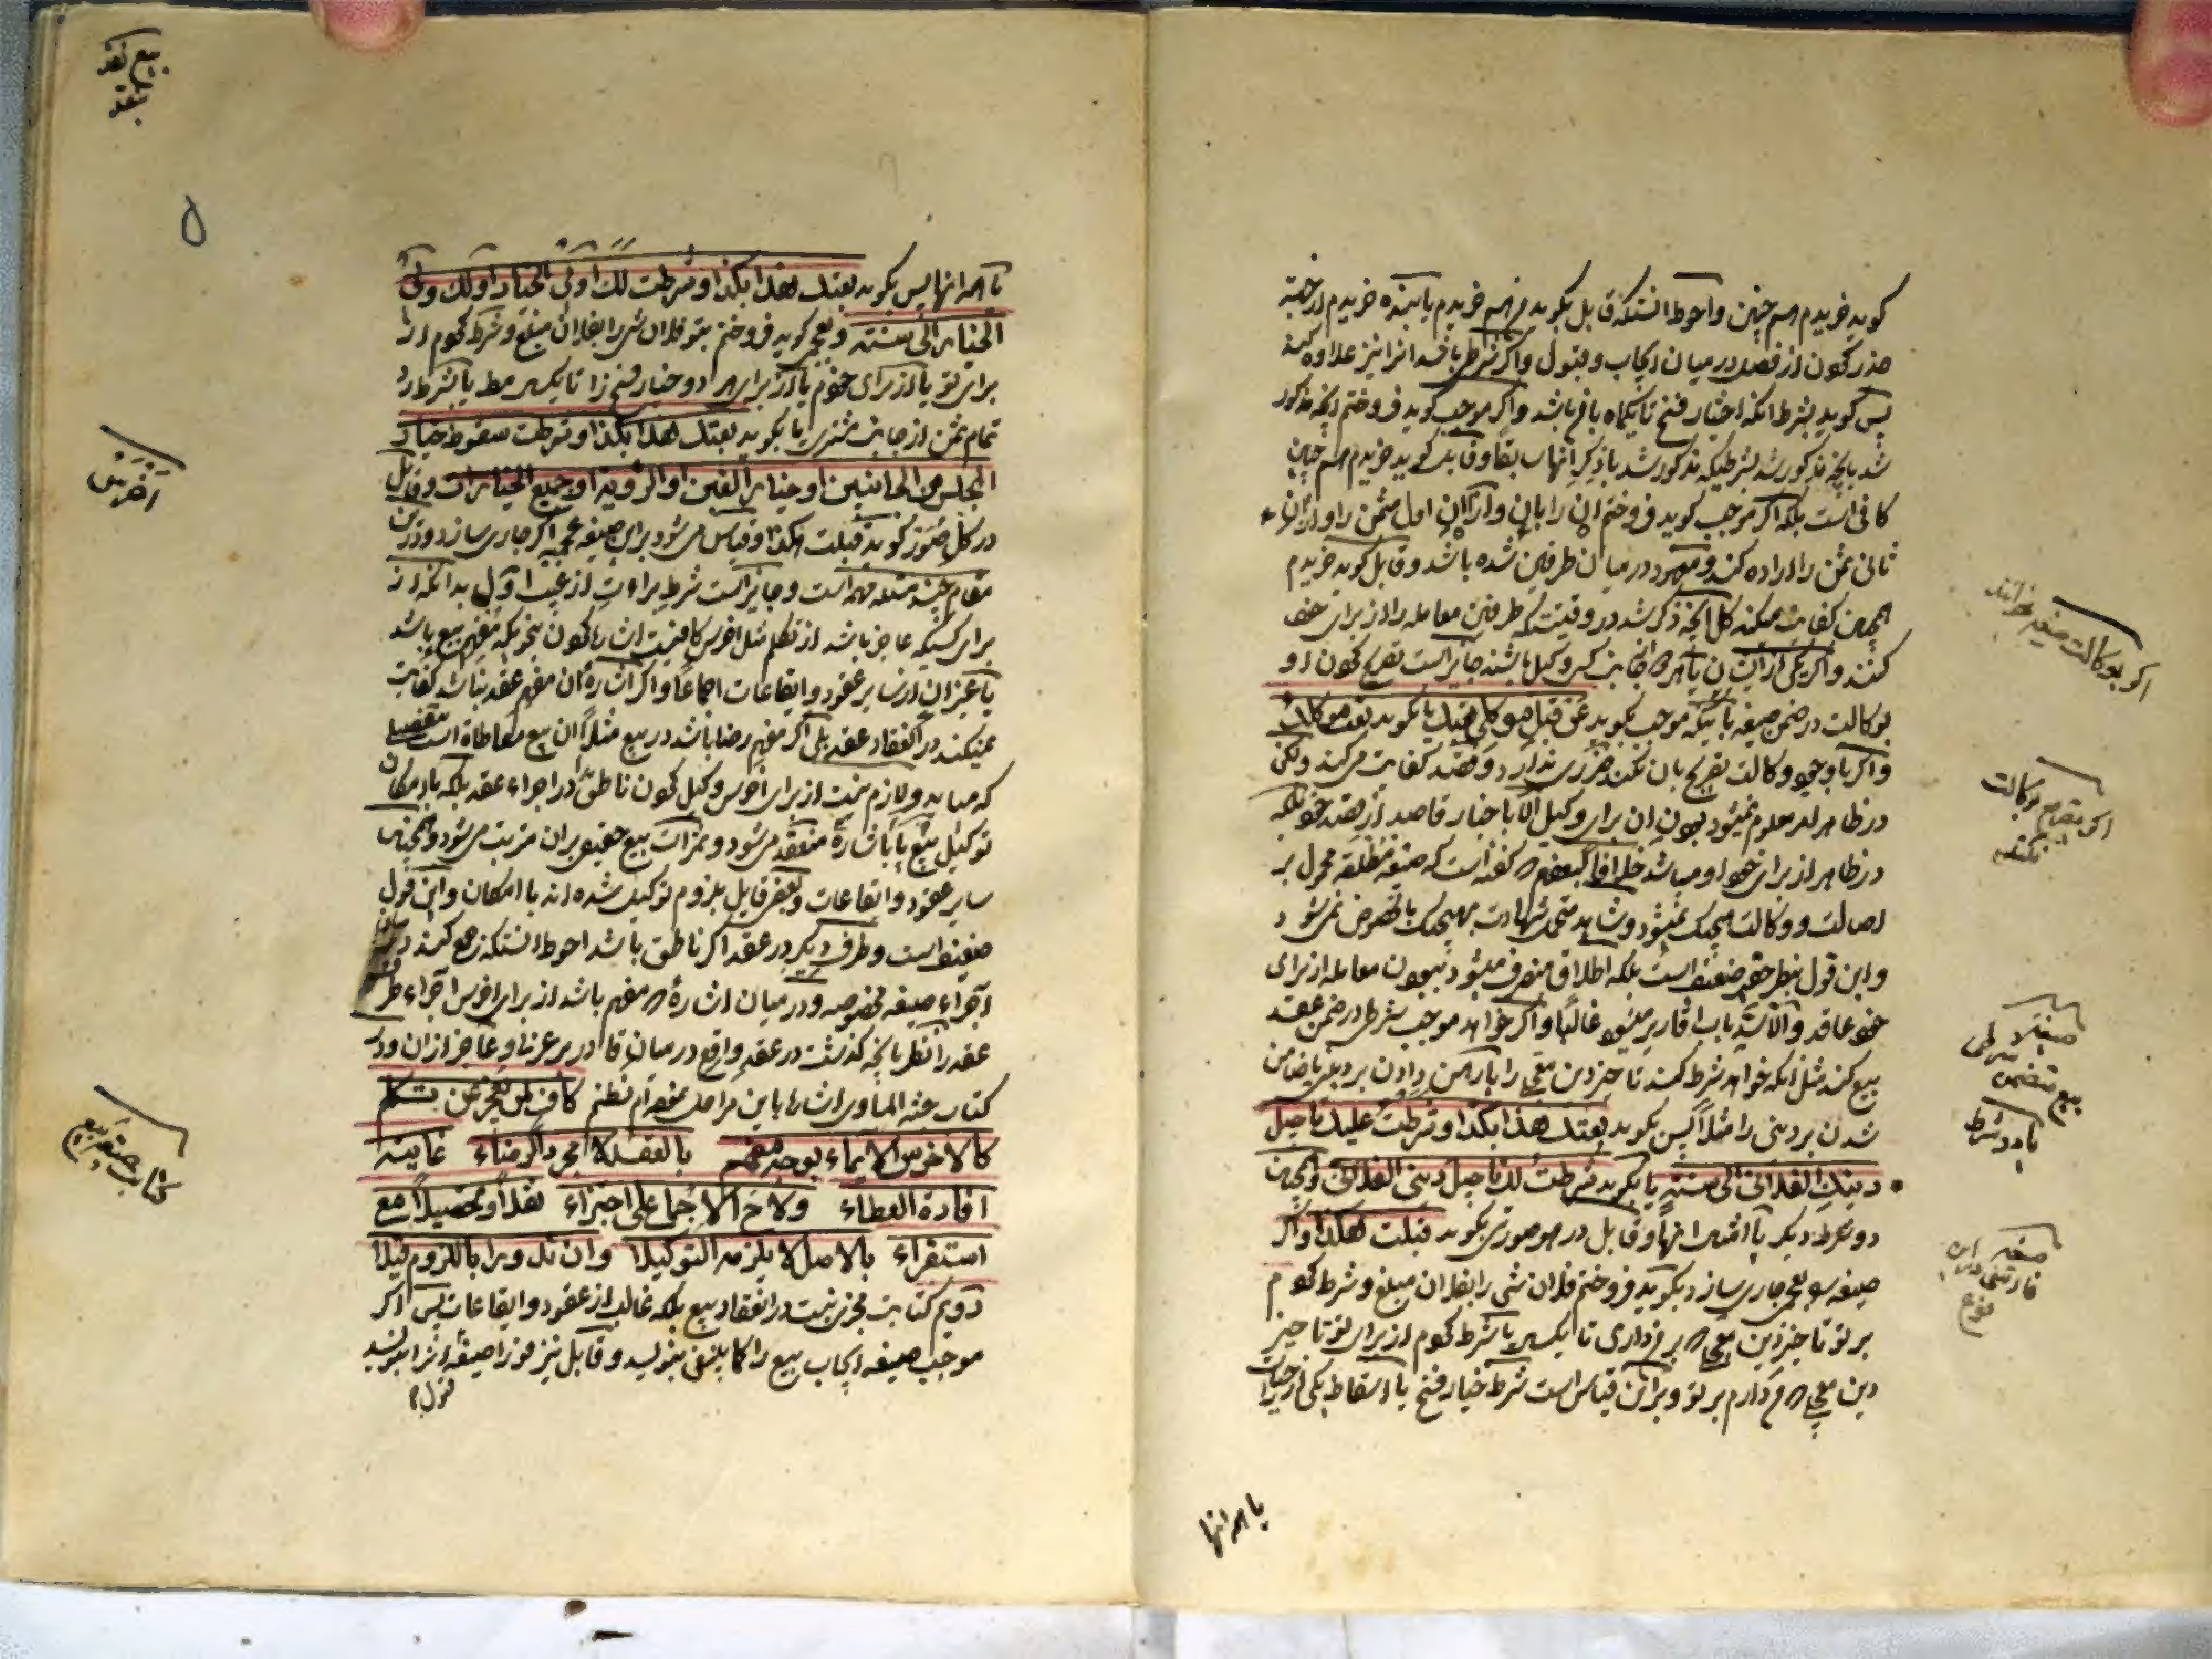 گوید خریدم هم چنین و احوط انستکه قابل بگوید من هم خریدم یا بنده خریدم از جهة
حذر کون از فصل در میان ایجاب و قبول و اگر شرط باشد انرا نیز علاوه کند
پس گوید بشرط انکه اختیار فسخ تا یکماه با من باشد و اگر موجب گوید فروختم انچه مذکور
شد بانچه مذکور شد بشرطیکه مذکور شد با ذکر انها سابقا و قابل گوید خریدم هم چنین
کافی است بلکه اگر موجب گوید فروختم ان را بان و از ان اول مثمن را و از ان
ثانی ثمن را اراده کند و معهود در میان طرفین شده باشد و قابل گوید خریدم
همین کفایت میکند کل انچه ذکر شد در وقتیست که طرفین معامله را از برای خود
کنند و اگر یکی از ایشان یا هر دو از جانب کسی وکیل باشند جایز است تصریح کون او
بوکالت در ضمن صیغه باینکه موجب بگوید عن قبل موکلی بعتك یا بگوید بعت موکلك
و اگر با وجود وکالت تصریح بان نکند ضرری ندارد و قصد کفایت میکند ولکن
در ظاهر امر معلوم نمیشود بودن ان برای وکیل الا با خبار قاصد از قصد خود بلکه
در ظاهر از برای خود او میباشد خلافا لبعضهم که گفته است که صیغه مطلقه محمول بر
اصالت و وکالت هیچیک نمیشود و شاهد متحمل شهادت بهیچیک بالخصوص نمیشود
و این قول بنظر حقیر ضعیف است بلکه اطلاق منصرف میشود ببودن معامله از برای
خود عاقد و الا سد باب اقاریر میشود غالبا و اگر خواهد موجب شرطی در ضمن عقد
بیع کند مثل انکه خواهد شرط کند تاخیر دین معجل را یا رهن دادن بر دینی یا ضامن
شدن بر دینی را مثلا پس بگوید بعتك هذا بکذا و شرطت علیك تاجیل
دینك الفلانی الی سنة یا بگوید شرطت لك تاجیل دینی الفلانی و همچنین
دو شرط دیگر یا امثال انها و قابل در هر صورتی بگوید قبلت هکذا و اگر
صیغه بیع عجمی جاری سازد بگوید فروختم فلان شی را بفلان مبلغ و شرط کوم
بر تو تاخیر دین معجل که بر من داری تا یکسال یا شرط کوم از برای تو تاخیر
دین معجل که من دارم بر تو و بر این قیاس است شرط خیار فسخ یا اسقاط یکی از خیارات
یا همه انها
اگر بوکالت صیغه بخوانند
اگر تصریح بوکالت نکند
صیغه بیع متضمن شرطی یا دو شرط
صیغه فارسی این نوع
بیع نقد
۵
یا همه انها پس بگوید بعتك هذا بکذا و شرطت لك او لی الخیار او لك ولی
الخیار الی سنة و بعجمی گوید فروختم بتو فلان شی را بفلان مبلغ و شرط کوم از
برای تو یا از برای خودم یا از برای هر دو خیار فسخ را تا یکسال مط یا بشرط رد
تمام ثمن از جانب مشتری یا بگوید بعتك هذا بکذا و شرطت سقوط خیار
المجلس من الجانبین او خیار الغبن او الرؤیة او جمیع الخیارات و قابل
در کل صور گوید قبلت هکذا و قیاس میشود بر این صیغه عجمیه اگر جاری سازد و در این
مقام چند مسئله مهمه است و جایز است شرط براءت از عیب اول بدانکه از
برای کسیکه عاجز باشد از تکلم مثل اخرس کافیست اشاره کون بنحویکه مفهم بیع باشد
یا غیر ان از سایر عقود و ایقاعات اجماعا و اگر اشاره ان مفهم عقد نباشد کفایت
نمیکند در انعقاد عقد بلی اگر مفهم رضا باشد در بیع مثلا ان بیع معاطاة است بتفصیل
که میاید و لازم نیست از برای اخرس وکیل کون ناطق را در اجراء عقد بلکه با امکان
توکیل بیع با اشاره منعقد میشود و ثمرات بیع حقیقی بران مترتب میشود و همچنین
سایر عقود و ایقاعات و بعضی قایل بلزوم توکیل شده اند با امکان و این قول
ضعیف است و طرف دیگر در عقد اگر ناطق باشد احوط انستکه جمع کند میان
اجراء صیغه مخصوصه و در میان اشاره که مفهم باشد از برای اخرس اجراء طرف
عقد را نظر بانچه گذشت در عقد واقع در میان قادر بر عربی و عاجز از ان و در
کتاب جنة الماوی اشاره باین مراحل نموده ام نظم کاف لمن یعجز عن تکلم
کالاخرس الایماء بوجه مفهم بالعقد لا مجرد الرضاء غایته
افادة العطاء ولاح الاجماع علی اجتزاء نقلا و تحصیلا مع
استقراء بالاصل لا یلزمه التوکیلا وان تل وبرا باللزوم قیلا
دویم کتابت مجزی نیست در انعقاد بیع بلکه غالب از عقود و ایقاعات پس اگر
موجب صیغه ایجاب بیع را کاملا بنویسد و قابل نیز فورا صیغه انرا بنویسد
قبول
اخرس
کتابت صیغه بیع